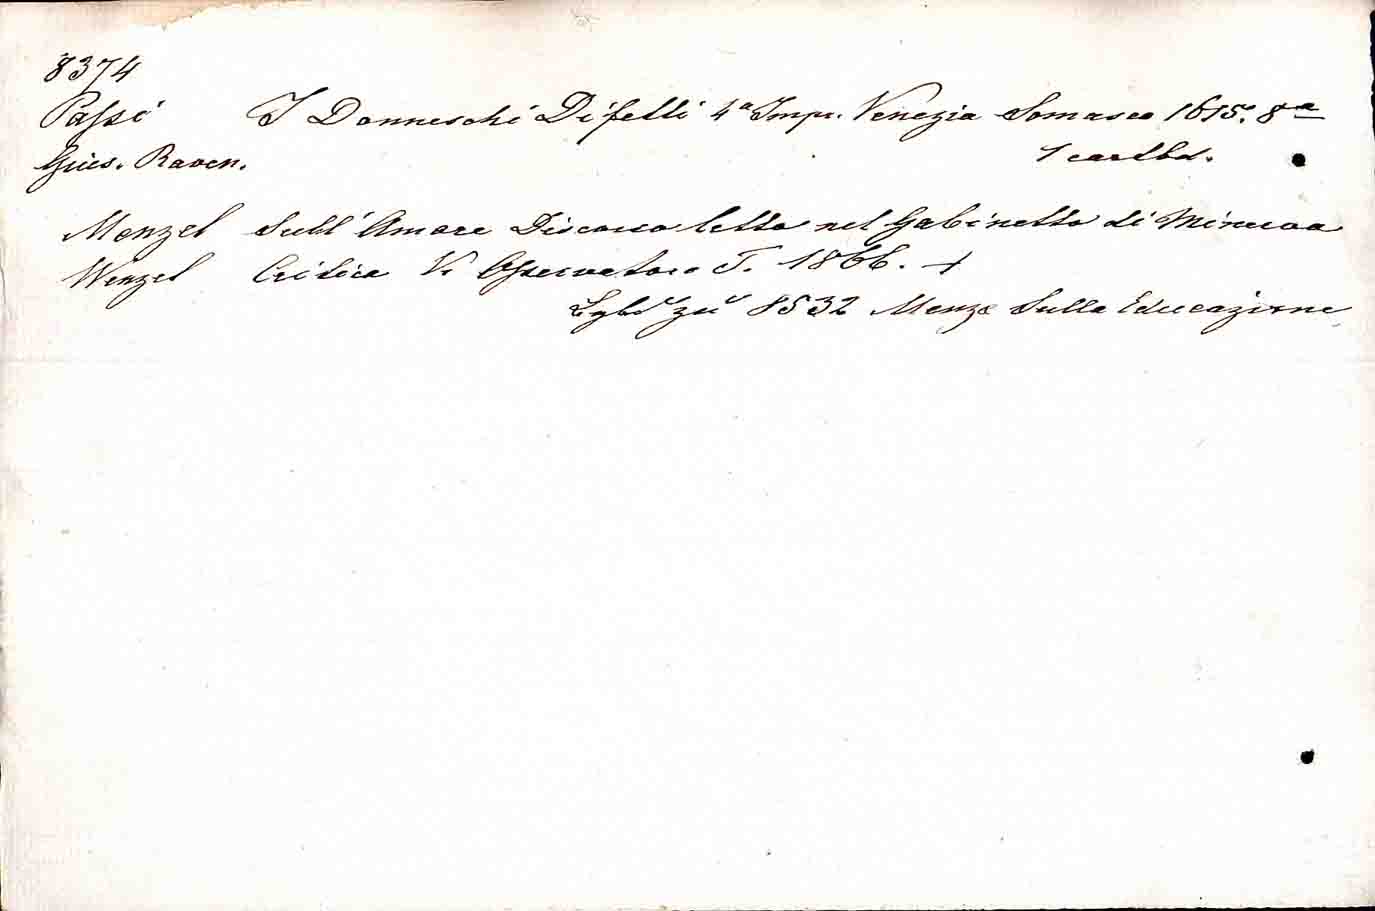 8374
Passi I Donneschi Difetti 4a Impr. Venezia Somasco 1615. 8a
Gius. Raven. 1 cartbd.
Menzel Sull' Amore Discorso letto nel Gabinetto di Minerva
Wenzel Critica V. Osservatore T. 1866. +
zu 8532 Menze Sulla Educazione